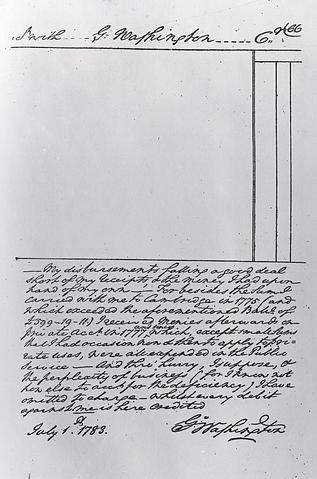 .. with .... G: Washington ..... Cr
— My disbursements falling a good deal
short of my Receipts, & the Money I had upon
hand of my own — For besides the Sum I
carried with me to Cambridge in 1775 (and
which exceeded the aforementioned Balce of
£599-19-11) I received Monies afterwards on
private Acct in 1777 and since which, except small Sums
that I had occasion now & then to apply to pri-
vate uses, were all expended in the Public
Service — And thro' hurry, I suppose, &
the perplexity of business, (for I know not
how else to acct for the deficiency) I have
omitted to charge — whilst every debit
against me is here credited
July 1st 1783. Go Washington